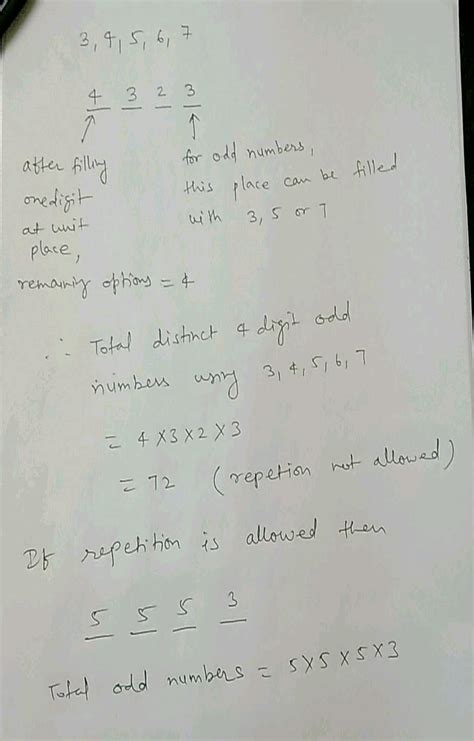 3, 4, 5, 6, 7
4 3 2 3
after filling
one digit
at unit
place,
remaining options = 4
for odd numbers,
this place can be filled
with 3, 5 or 7
∴ Total distinct 4 digit odd
numbers using 3, 4, 5, 6, 7
= 4 × 3 × 2 × 3
= 72 (repetion not allowed)
If repetition is allowed then
5 5 5 3
Total odd numbers = 5 × 5 × 5 × 3